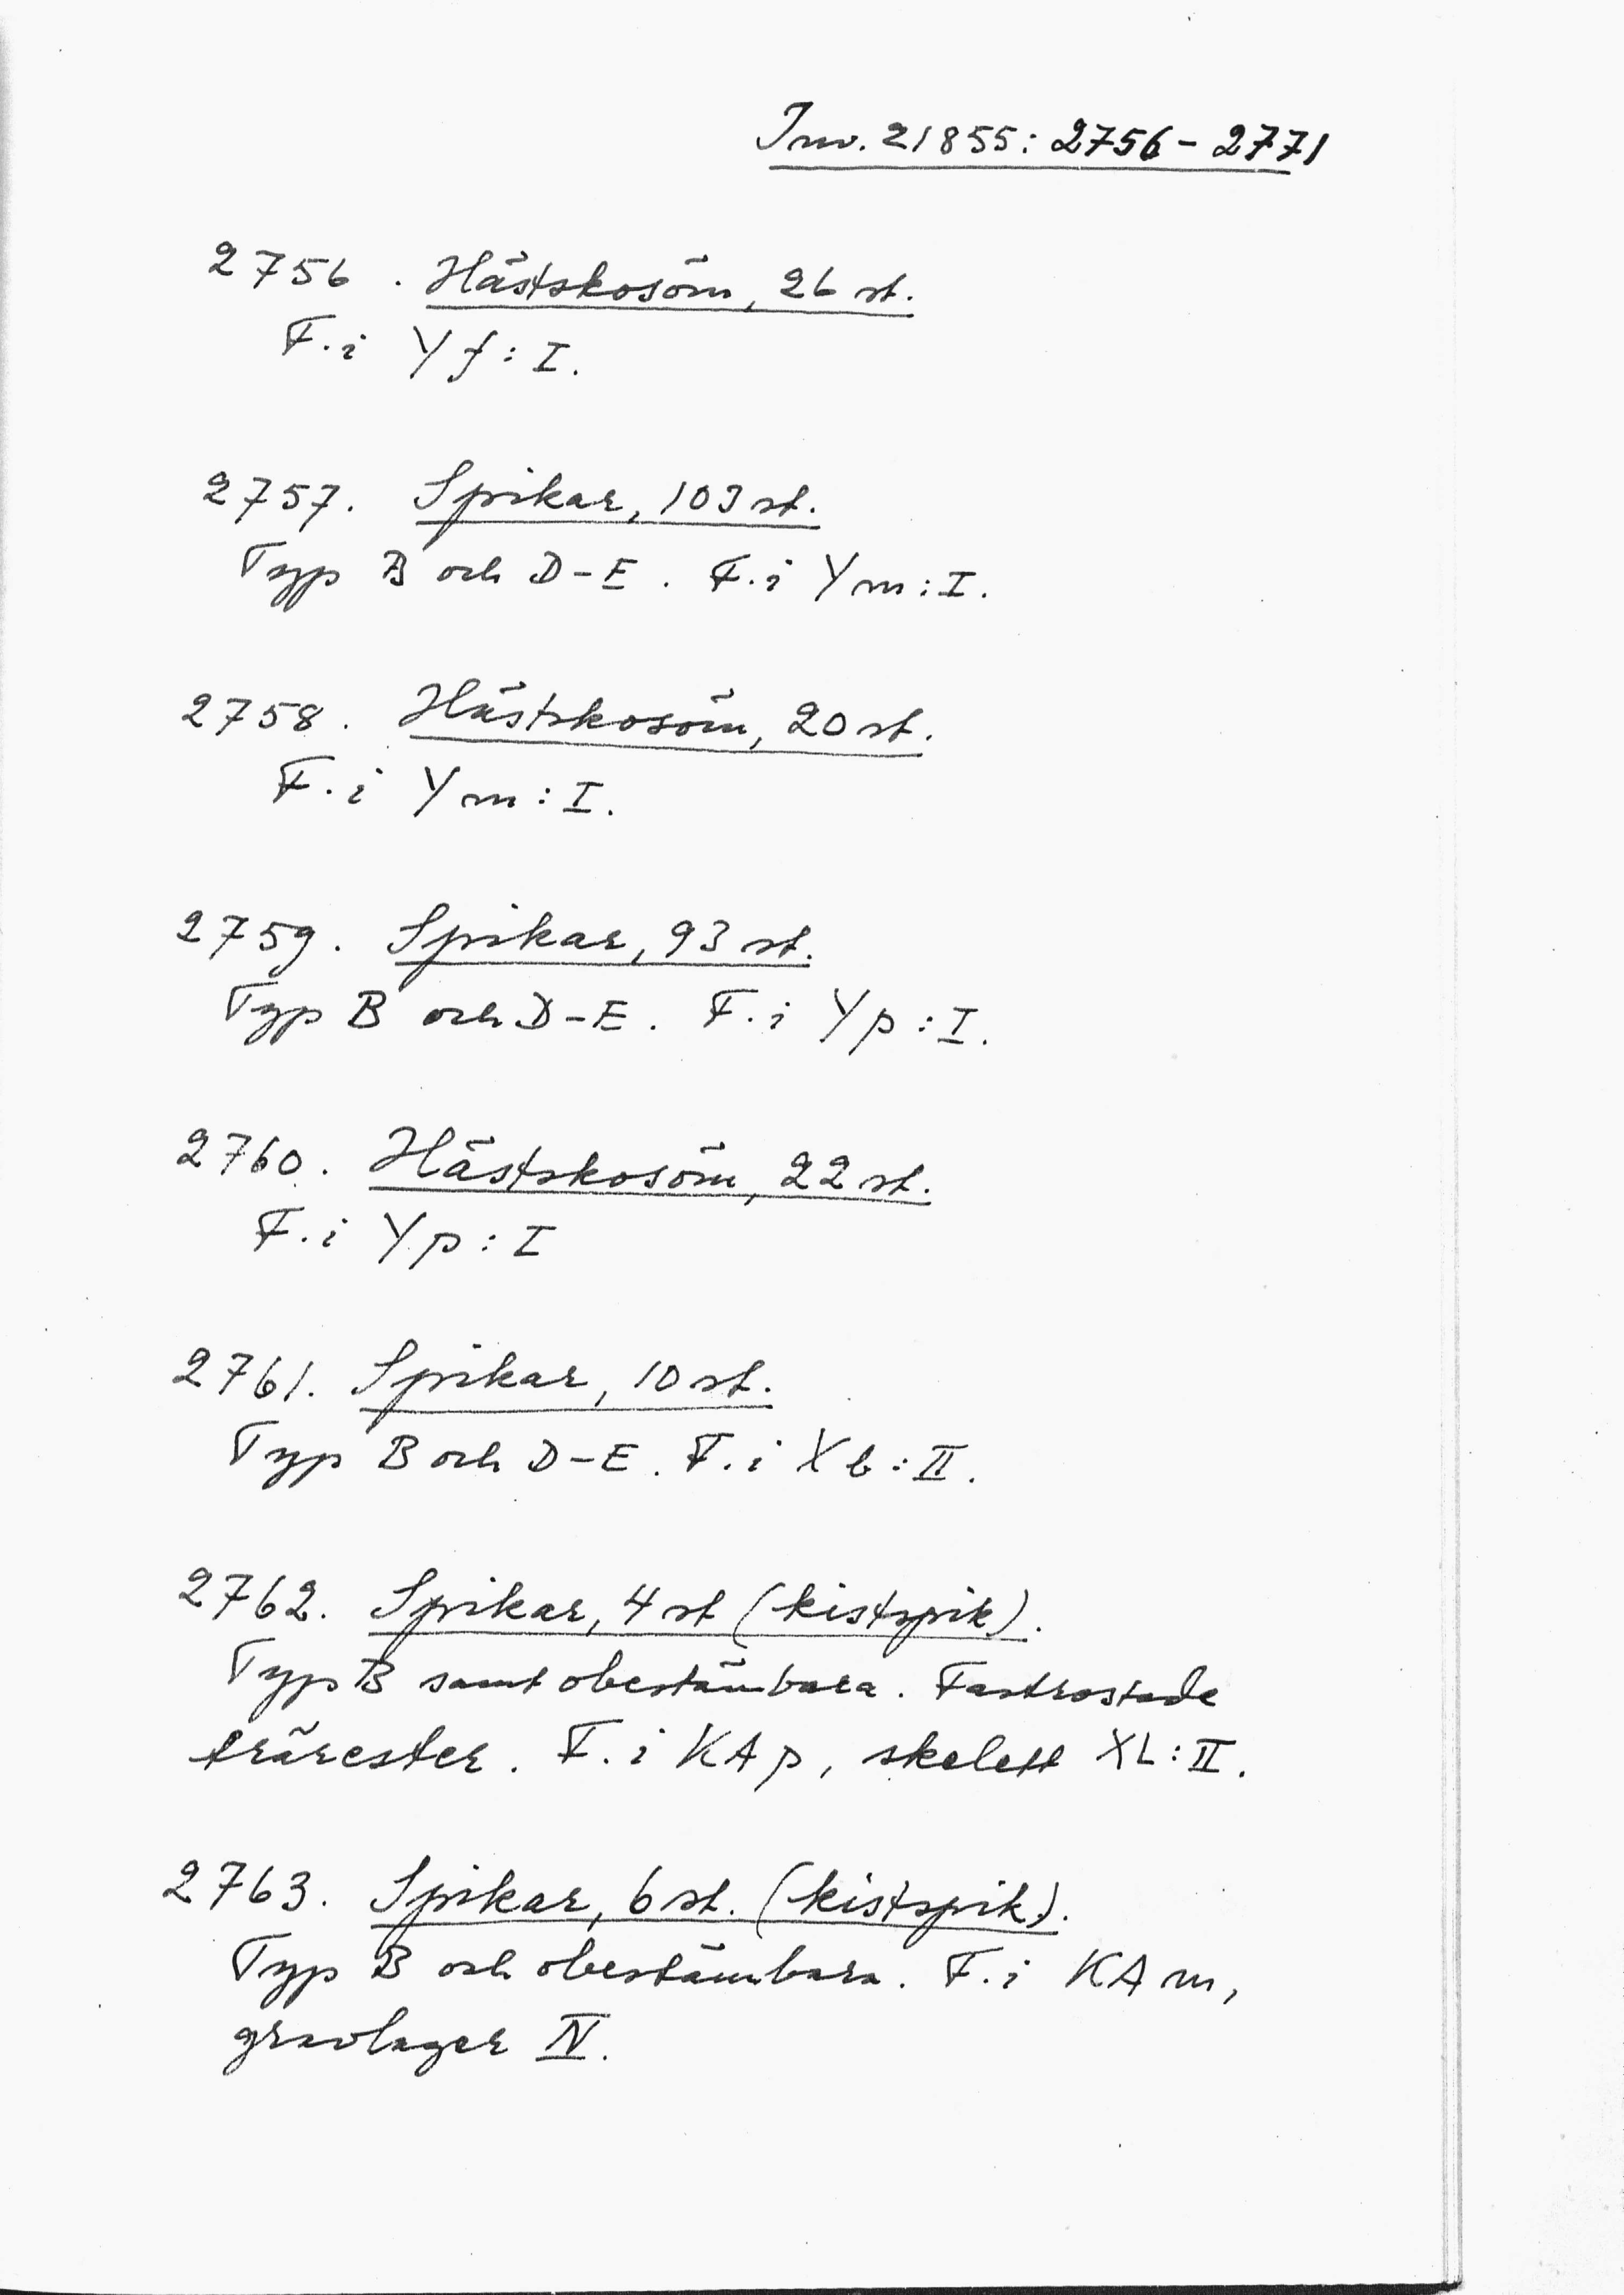 Inv. 21855: 2756-2771
2756. Hästskosöm, 26 st.
F. i Yf: I.
2757. Spikar, 103 st.
Typ B och D-E. F. i Ym: I.
2758. Hästskosöm, 20 st.
F. i Ym: I.
2759. Spikar, 93 st.
Typ B och D-E. F. i Yp: I.
2760. Hästskosöm, 22 st.
F. i Yp: I
2761. Spikar, 10 st.
Typ B och D-E. F. i Xb: II.
2762. Spikar, 4 st (kistspik).
Typ B samt obestämbara. Fastrostade
trärester. F. i KAp, skelett XL: II.
2763. Spikar, 6 st. (kistspik).
Typ B och obestämbara. F. i KAm,
gravlager IV.